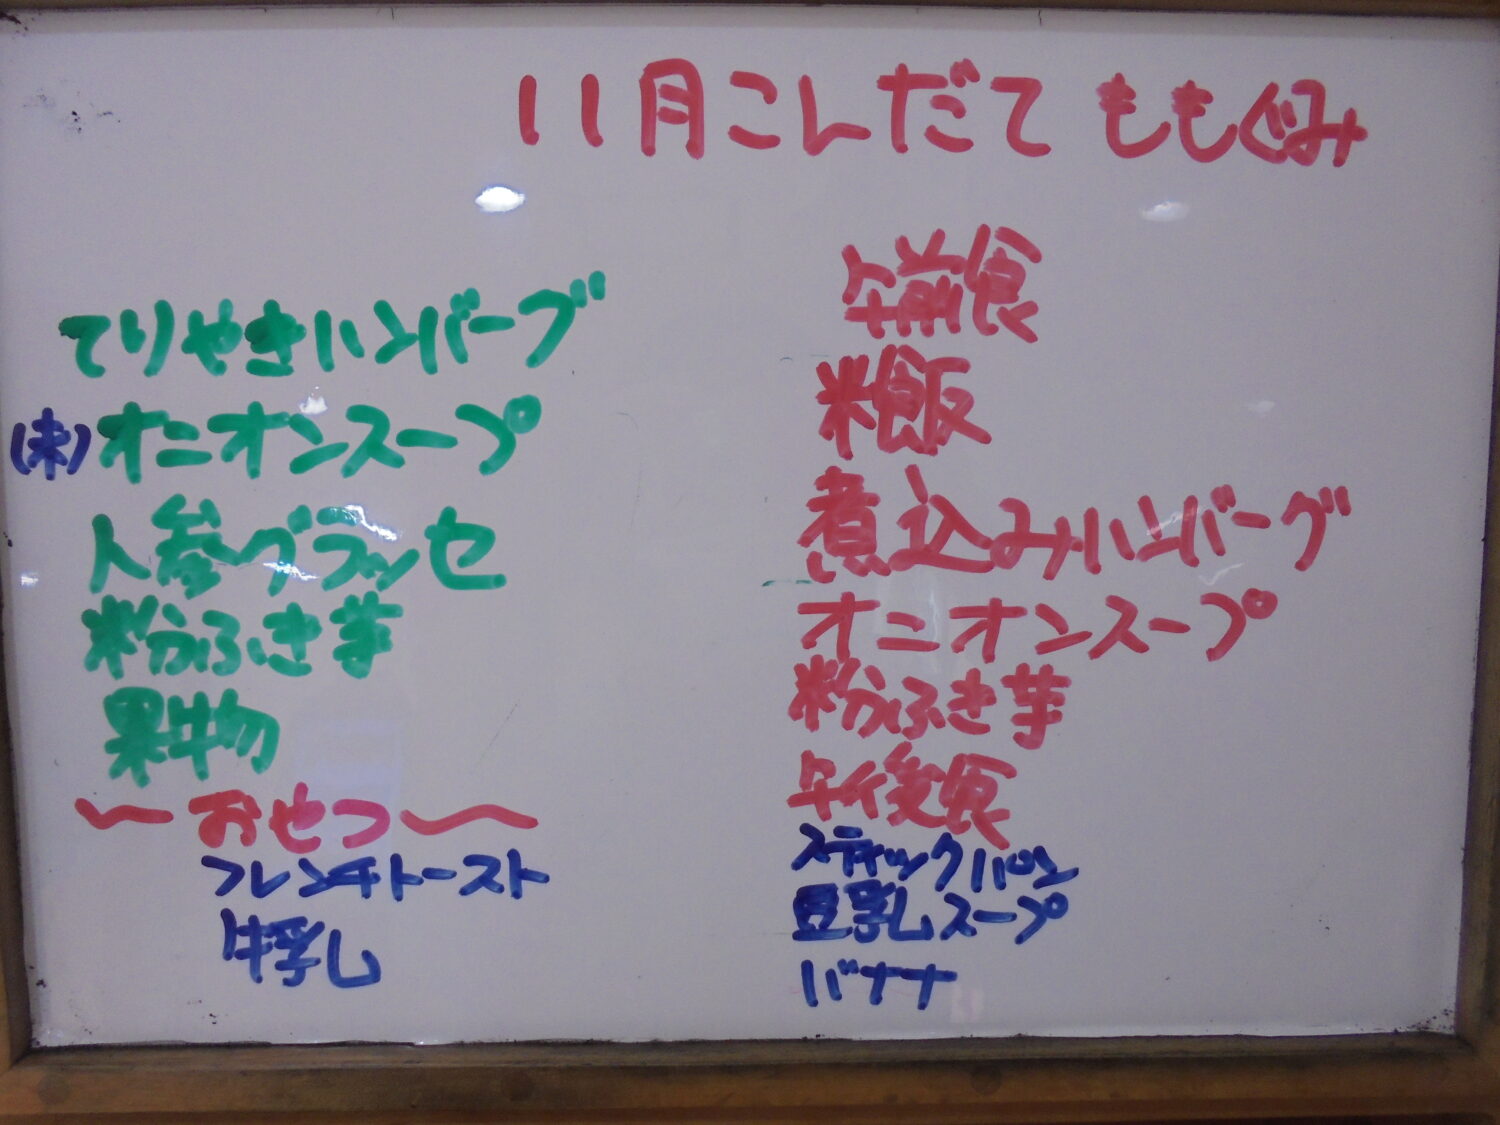 11月こんだて ももぐみ
てりやきハンバーグ
(木)オニオンスープ
人参グラッセ
粉ふき芋
果物
〜おやつ〜
フレンチトースト
牛乳
午前食
米飯
煮込みハンバーグ
オニオンスープ
粉ふき芋
午後食
スティックパン
豆乳スープ
バナナ